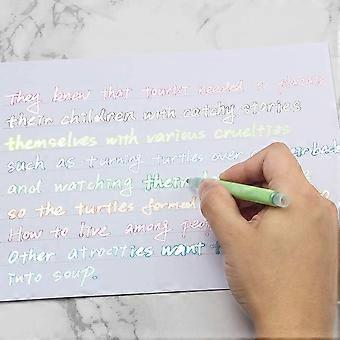 They knew that tourist needed a
their children with catchy stories
themselves with various cruelties
such as turning turtles over
and watching their
so the turtles formed
How to live among
Other atrocities want
into soup.